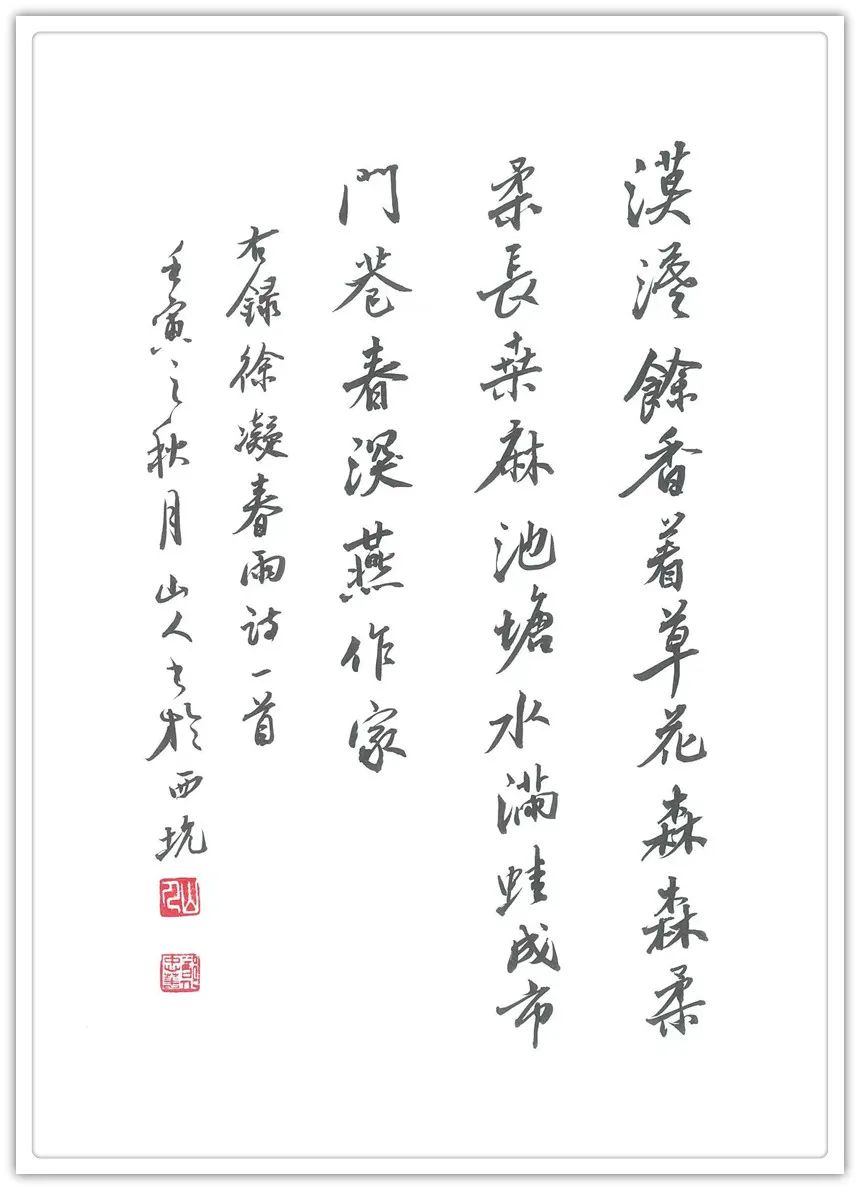 漠餘香着草花森森柔
柔長桒麻池塘水滿蛙成市
門巷春深燕作家
右録徐凝春雨詩一首
壬寅之秋月山人书於西坑
山人